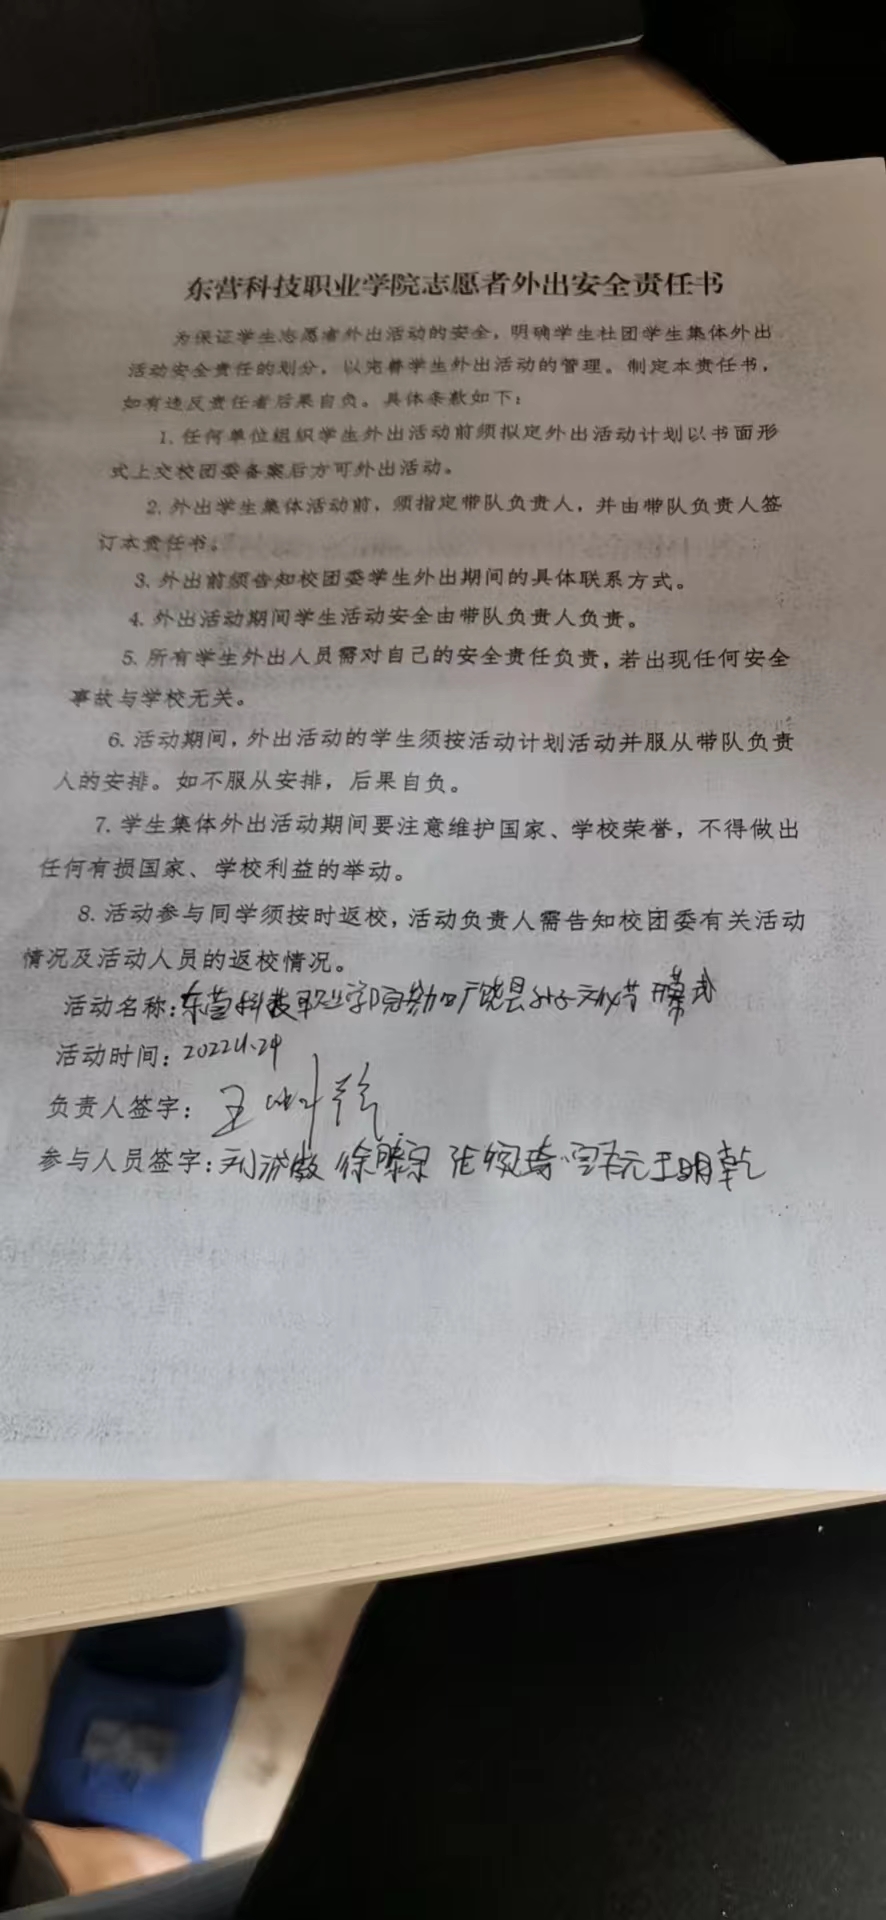 东营科技职业学院志愿者外出安全责任书
为保证学生志愿者外出活动的安全，明确学生社团学生集体外出
活动安全责任的划分，以完善学生外出活动的管理。制定本责任书，
如有违反责任者后果自负。具体条款如下：
1. 任何单位组织学生外出活动前须拟定外出活动计划以书面形
式上交校团委备案后方可外出活动。
2. 外出学生集体活动前，须指定带队负责人，并由带队负责人签
订本责任书。
3. 外出前须告知校团委学生外出期间的具体联系方式。
4. 外出活动期间学生活动安全由带队负责人负责。
5. 所有学生外出人员需对自己的安全责任负责，若出现任何安全
事故与学校无关。
6. 活动期间，外出活动的学生须按活动计划活动并服从带队负责
人的安排。如不服从安排，后果自负。
7. 学生集体外出活动期间要注意维护国家、学校荣誉，不得做出
任何有损国家、学校利益的举动。
8. 活动参与同学须按时返校，活动负责人需告知校团委有关活动
情况及活动人员的返校情况。
活动名称：东营科技职业学院参加广饶县孙子文化节开幕式
活动时间：2022.4.24
负责人签字：王
参与人员签字：刘 徐 张婉琦 王明乾